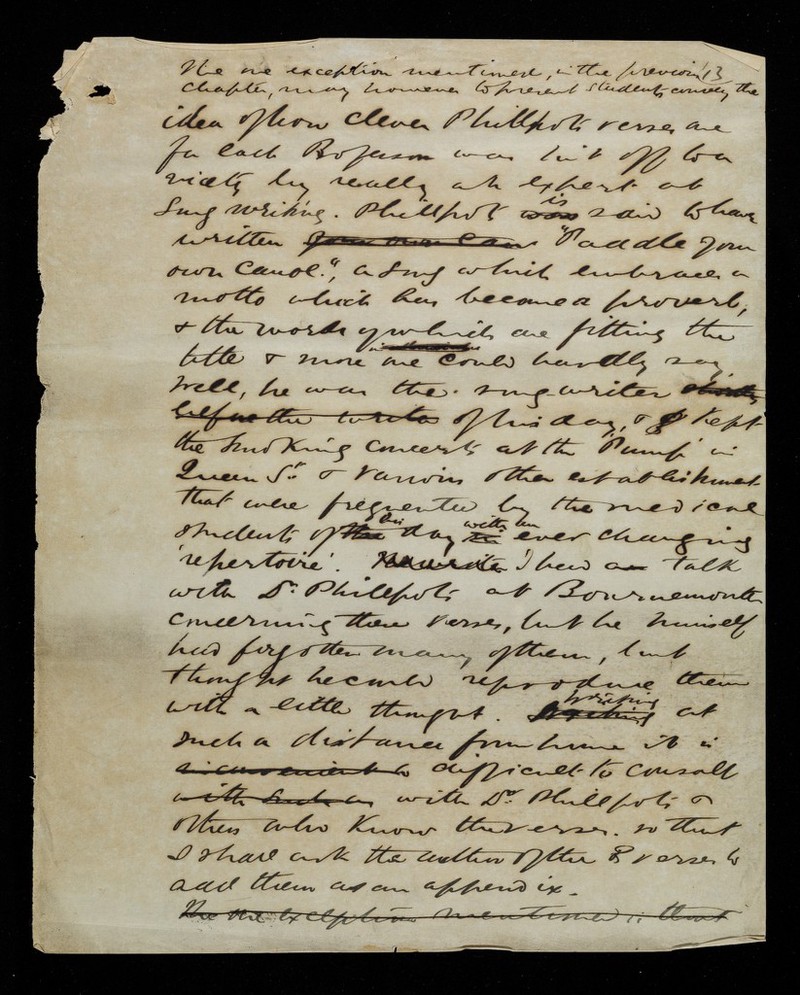 The one exception mentioned, in the previous 13
Chapter, may however to present Students convey the
idea of how Clever Phillpots verses are
for each Professor was hit off to a
nicety by really an expert at
Song writing. Phillpot was is said to have
written your own Can "Paddle your
own Canoe.", a song which embraces a
motto which has become a proverb,
& the words of which are fitting the
title & more one could hardly say.
Well, he was the song-writer
before the writer of his day, & kept
the smoking concerts at the 'Pump' in
Queen St. & various other establishments
that were frequented by the medical
students of the his day with an ever changing
'repertoire'. I had a talk
with Dr. Phillpots at Bournemouth
concerning these verses, but he himself
had forgotten many of them, but
thought he could reproduce them
with a little thought. Writing at
such a distance from home it is
inconvenient to difficult to consult
with such as with Dr. Phillpots &
others who know the verses. so that
I shall ask the author of the verses to
add them as an appendix.
The one exception mentioned is that